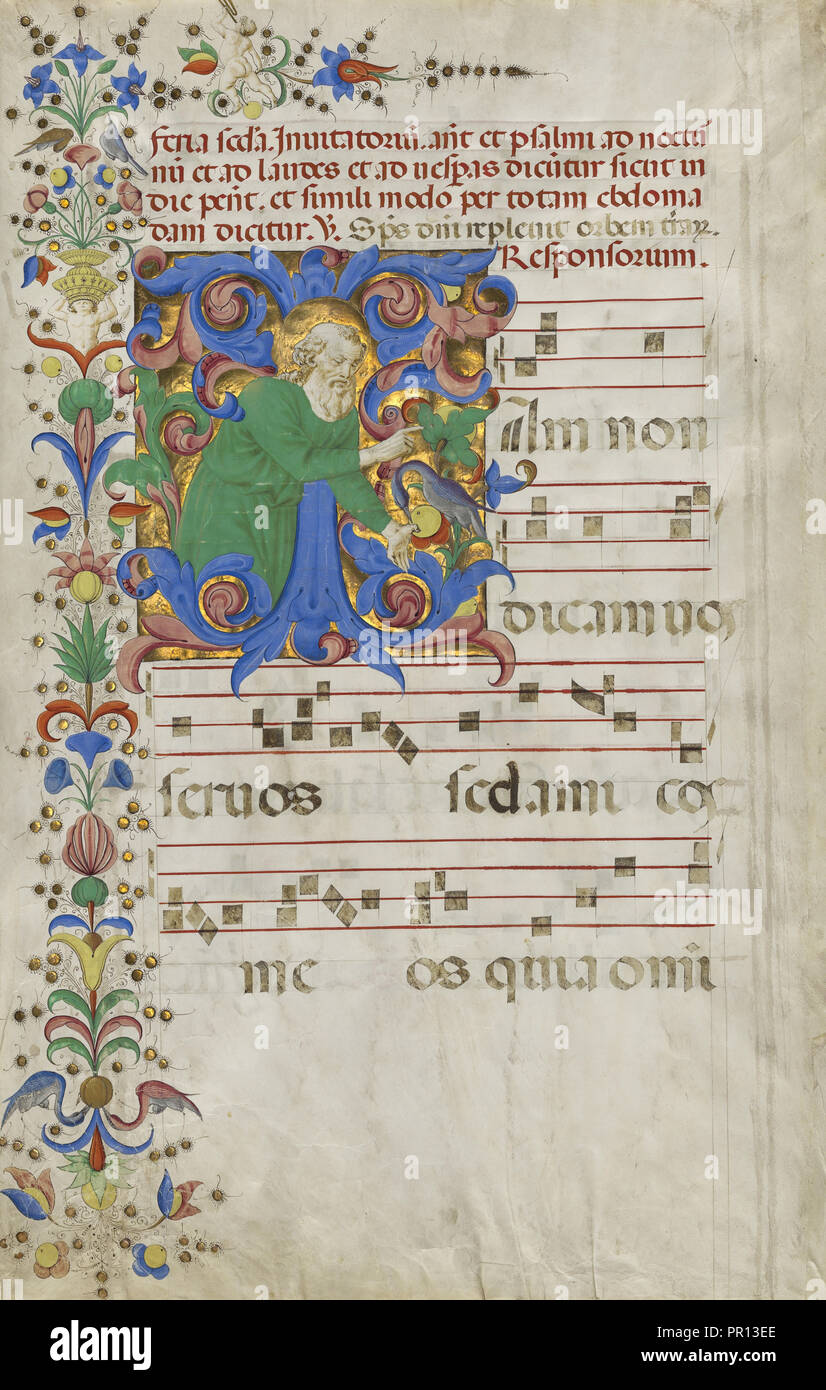 feria scd'a. Inuitatoriũ. añt et psalmi ad noctu
rnĩ et ad laudes et ad uesp̃as dicũtur sicut in
die pent̃. et simili modo per totam ebdoma
dam dicitur. V̷. Sp̃s dñi repleuit orbem t̃rar̃.
Responsorium.
Iam non
dicam uos
seruos sed ami cos
me os quia omĩ
alamy
alamy
a
a
a
a
alamy
Image ID: PR13EE
www.alamy.com